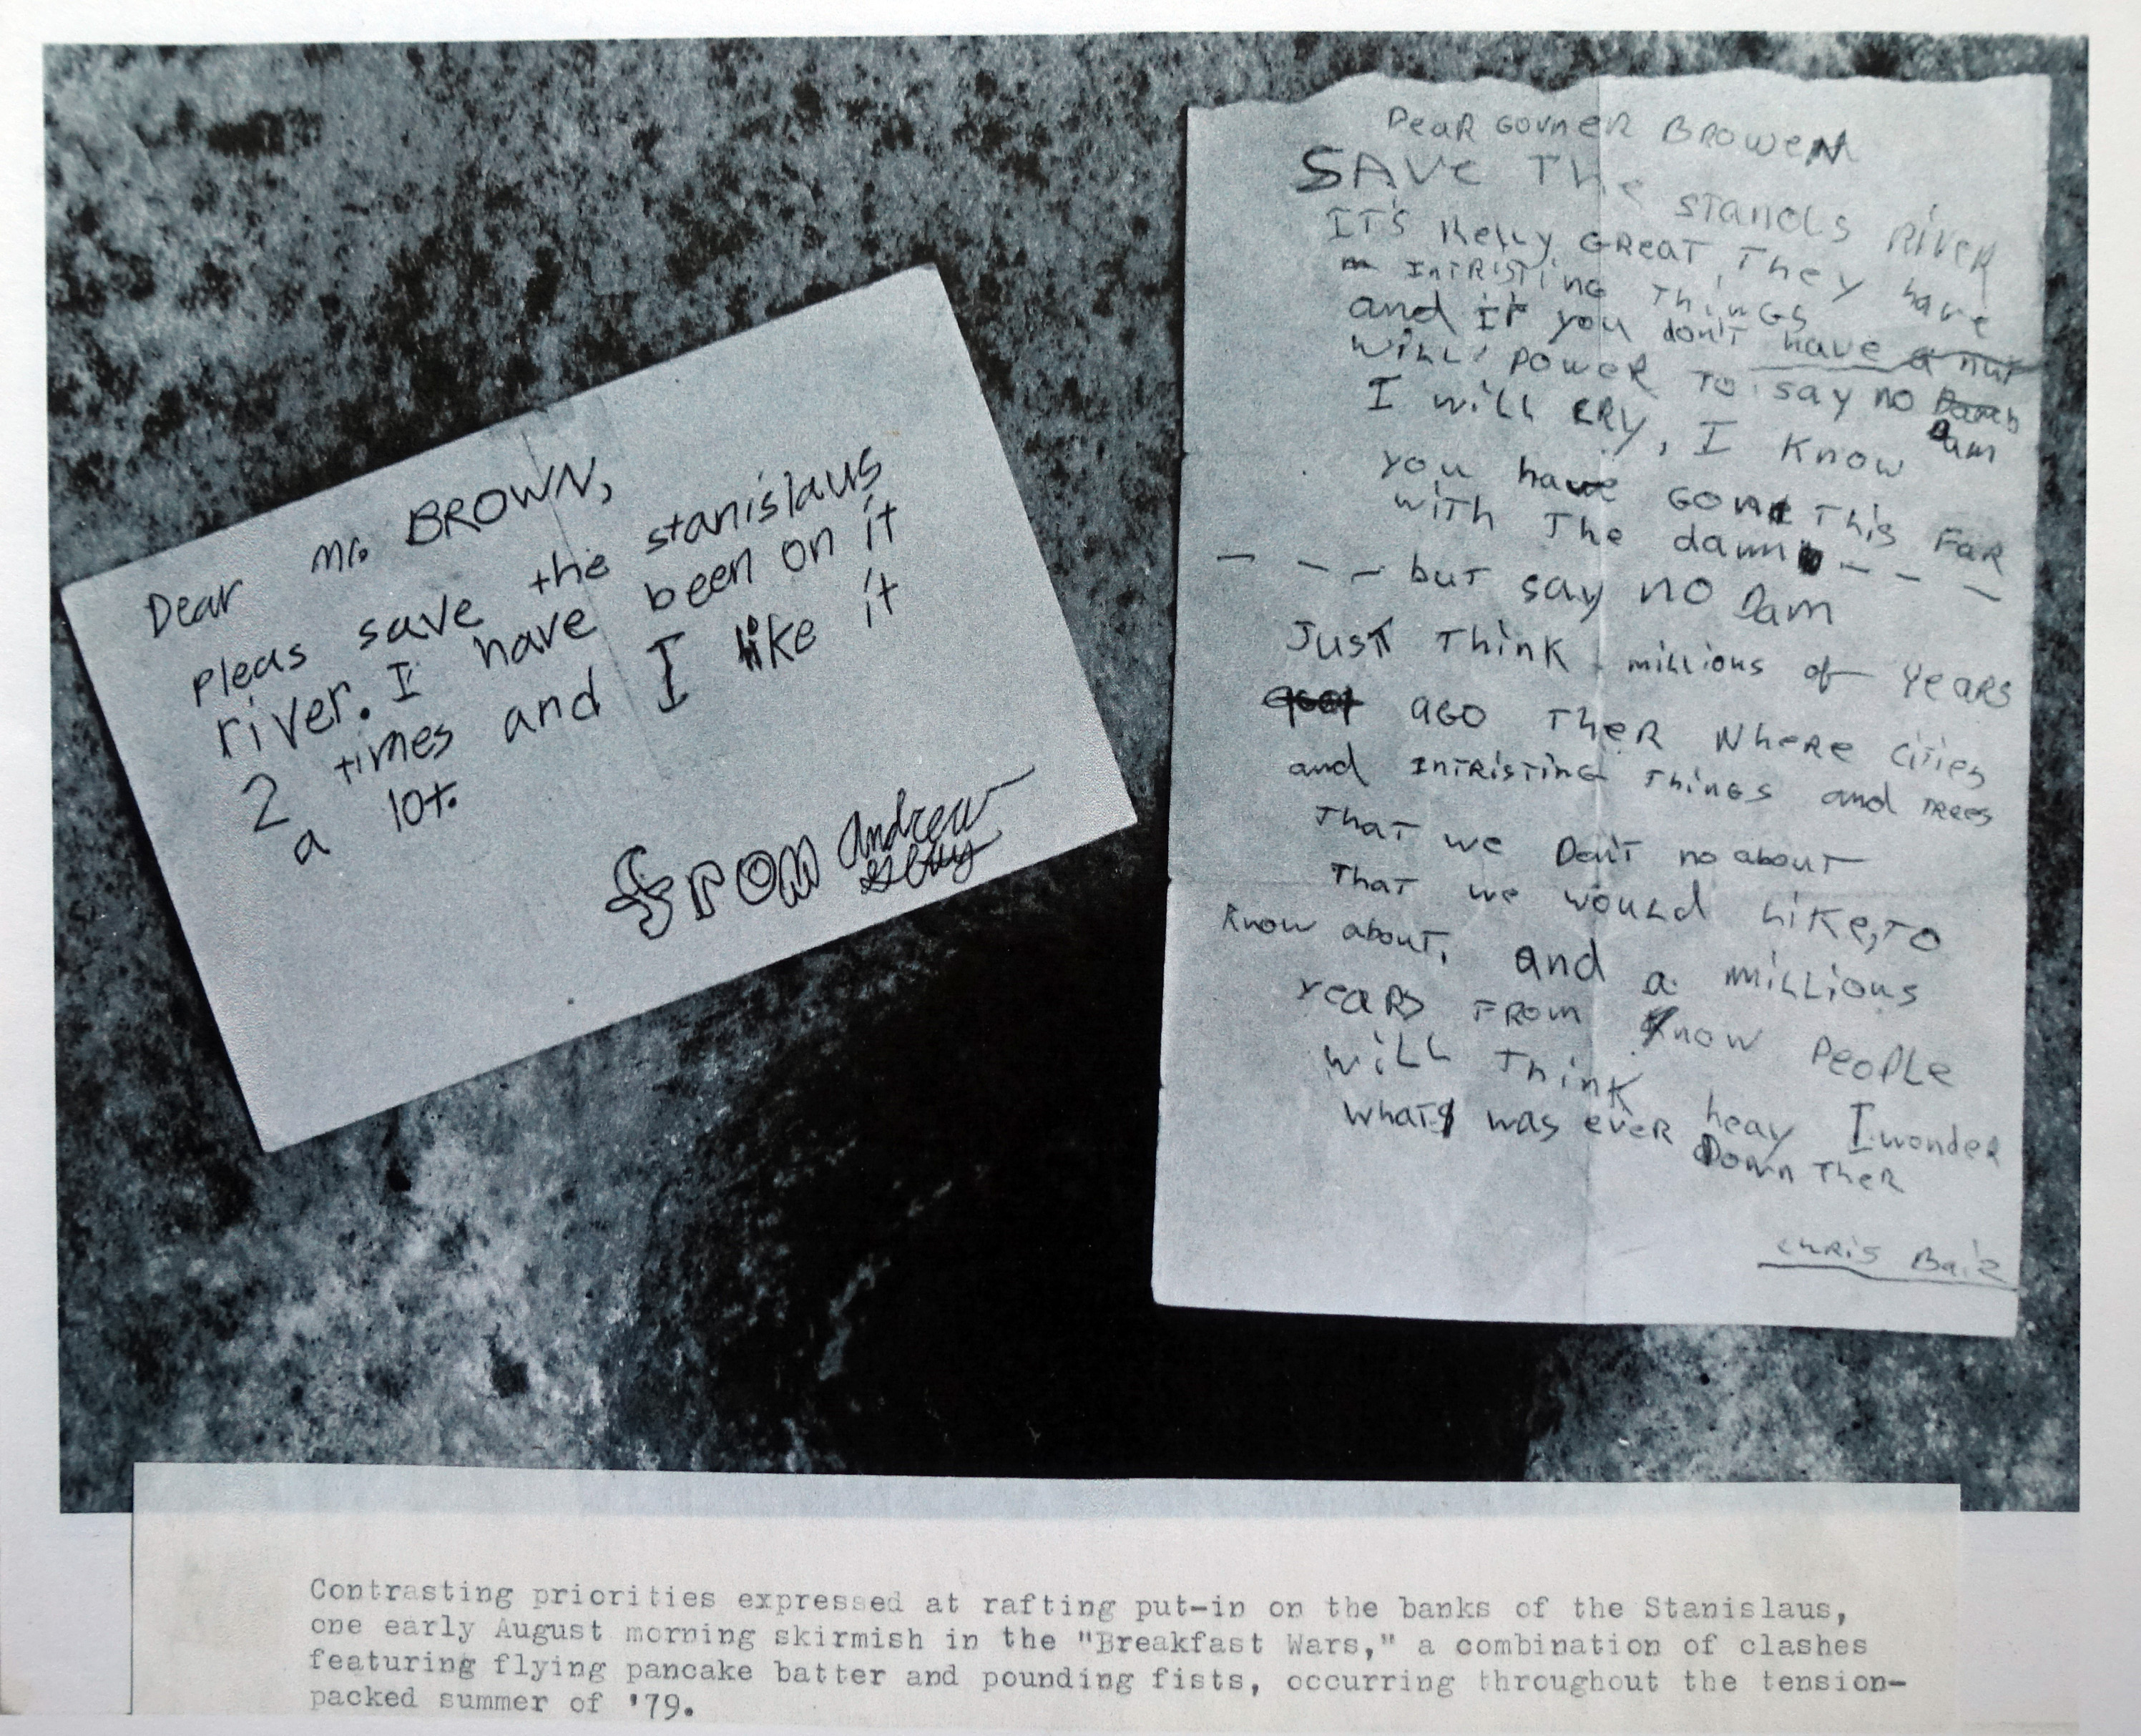 Dear Mr. BROWN,
pleas save the stanislaus
river. I have been on it
2 times and I like it
a lot.
From Andrew
Dear Govner Browen
SAVE The stanols River
IT'S Relly GREAT, They have
INTRISTING THINGS
and if you don't have a nuf
will power to say no Damb
Dam
I will CRY, I Know
you have GONE This Far
with The damn
- - - but say no Dam - - -
Just Think millions of Years
AGO TheR Where Cities
and INTRISTING Things and TRees
That we Don't no about
That we would Like, To
Know about, and a millions
Years From Know People
will Think heay I wonder
What was ever Down Ther
Chris Bair
Contrasting priorities expressed at rafting put-in on the banks of the Stanislaus,
one early August morning skirmish in the "Breakfast Wars," a combination of clashes
featuring flying pancake batter and pounding fists, occurring throughout the tension-
packed summer of '79.